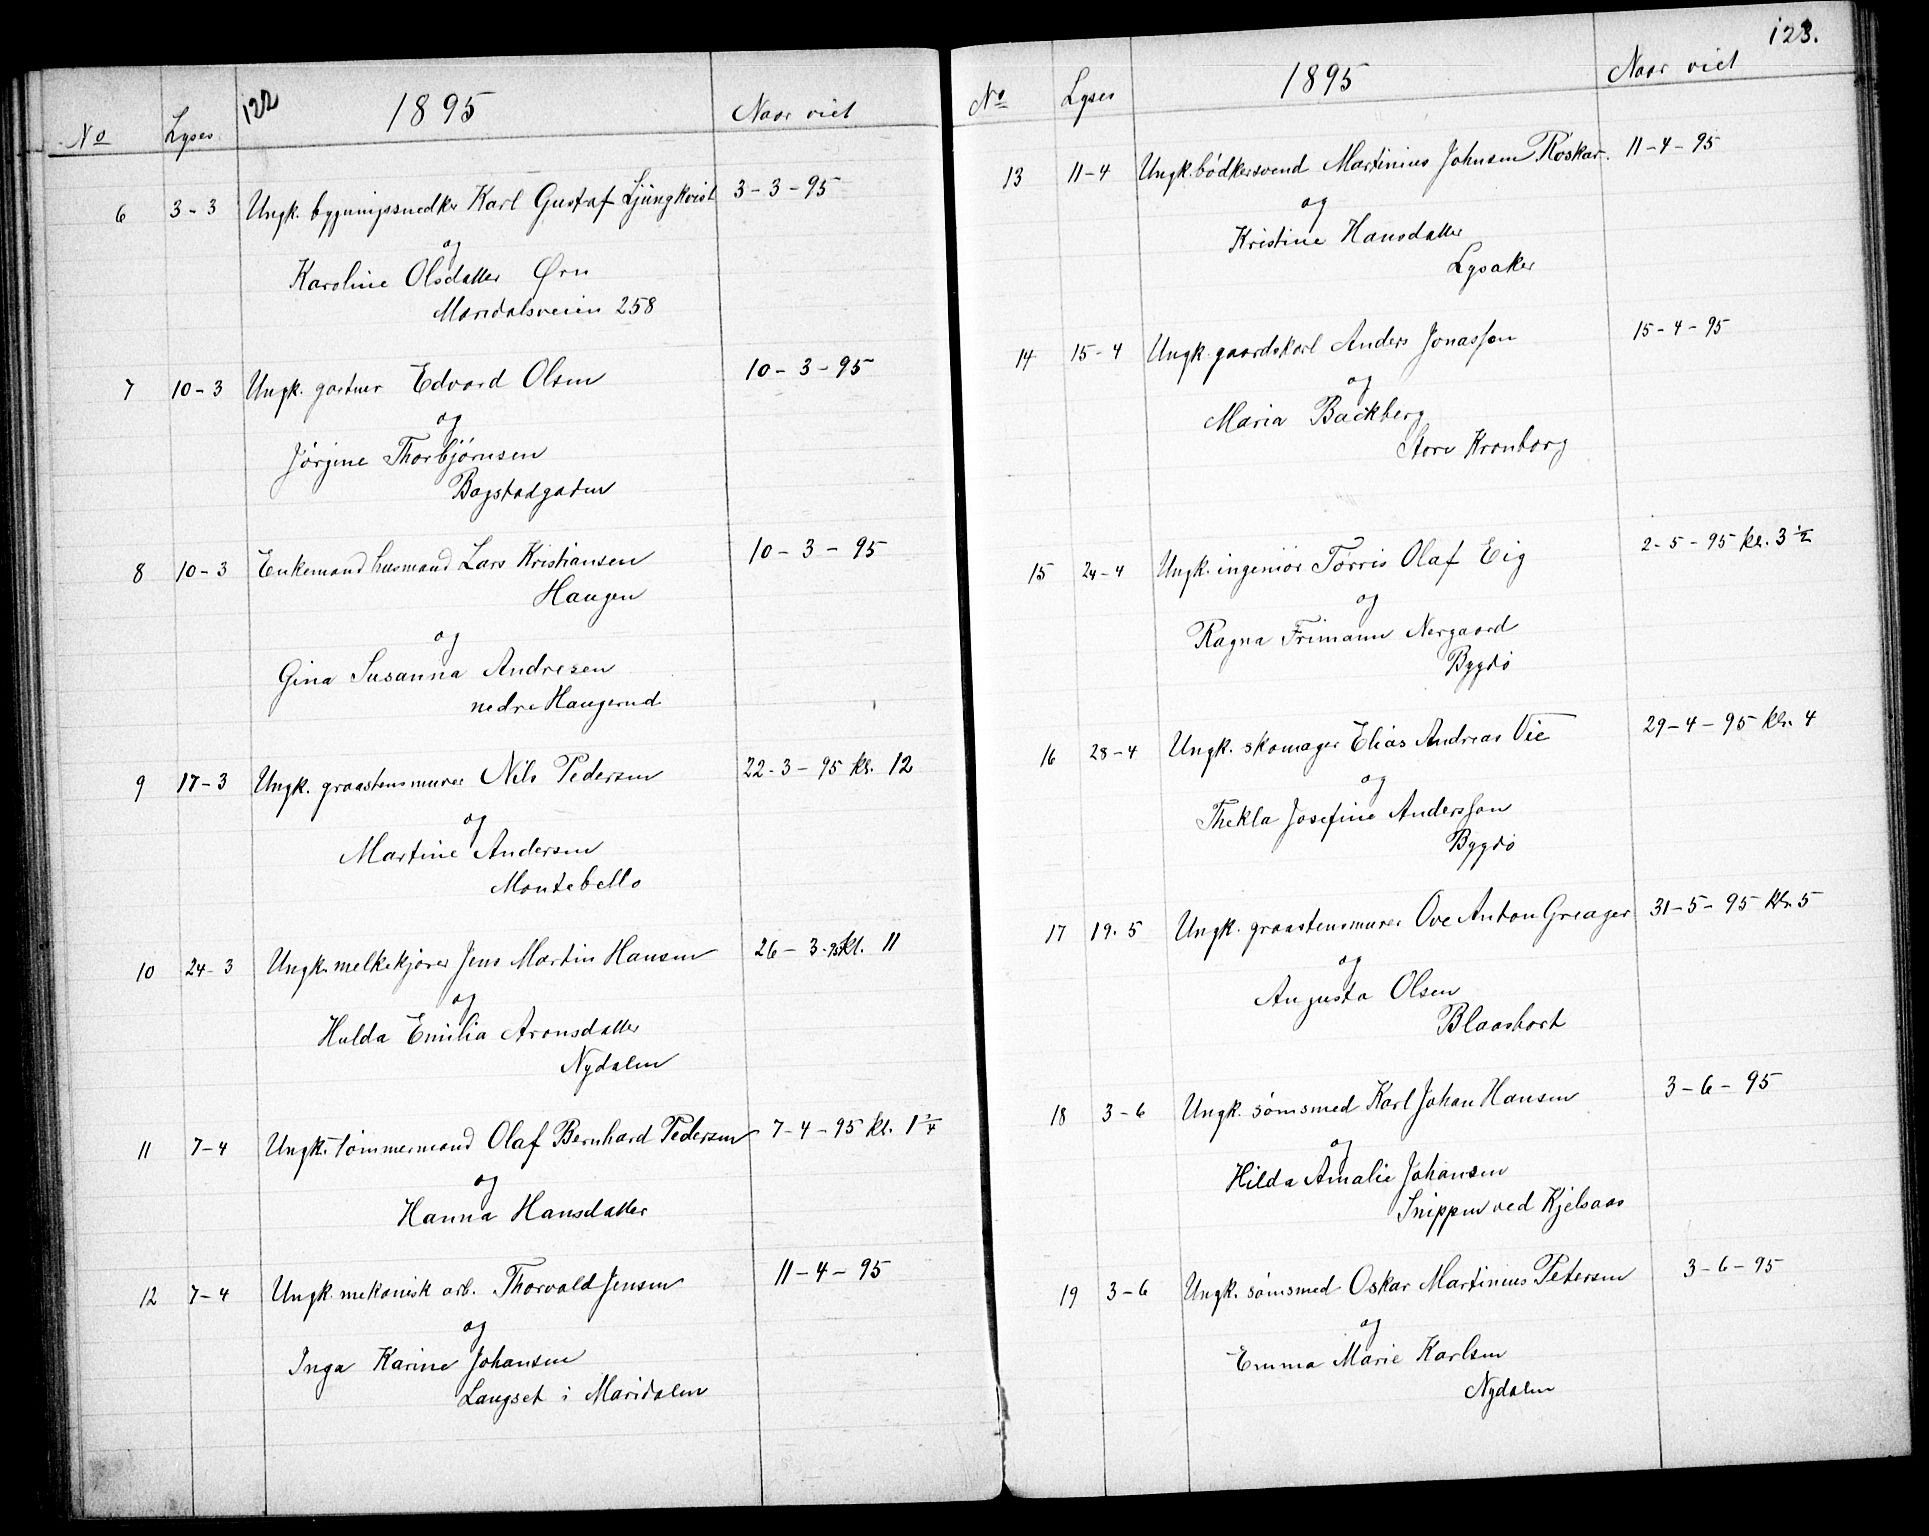 122
1895
No Lyses Naar viet
6 3-3 Ungk. bygningssnedker Karl Gustaf Ljüngkvist 3-3-95
og
Karoline Olsdatter Ørn
Maridalsveien 258
7 10-3 Ungk. gartner Edvard Olsen 10-3-95
og
Jörgine Thorbjörnsen
Bogstadgaten
8 10-3 Enkemand husmand Lars Kristiansen 10-3-95
Haugen
og
Gina Susanna Andresen
nedre Haugerud
9 17-3 Ungk. graastensmurer Nils Pedersen 22-3-95 kl. 12
og
Martine Andersen
Montebello
10 24-3 Ungk. melkekjörer Jens Martin Hansen 26-3-95 kl. 11
og
Hulda Emilia Aronsdatter
Nydalen
11 7-4 Ungk. tömmermand Olaf Bernhard Pedersen 7-4-95 kl. 1 3/4
og
Hanna Hansdatter
12 7-4 Ungk. mekanisk arb. Thorvald Jensen 11-4-95
og
Inga Karine Johansen
Langset i Maridalen
123.
1895
No Lyses Naar viet
13 11-4 Ungk. bödkersvend Martinius Johnsen Röskar. 11-4-95
og
Kristine Hansdatter
Lysaker
14 15-4 Ungk. gaardskarl Anders Jonasson 15-4-95
og
Maria Backberg
Store Kronborg
15 24-4 Ungk. ingeniör Torris Olaf Eig 2-5-95 kl. 3 1/2
og
Ragna Frimann Nergaard
Bygdö
16 28-4 Ungk. skomager Elias Andreas Vie 29-4-95 kl. 4
og
Thekla Josefine Andersson
Bygdö
17 19.5 Ungk. graastensmurer Ove Anton Greager 31-5-95 kl. 5
og
Augusta Olsen
Blaasbort
18 3-6 Ungk. sömsmed Karl Johan Hansen 3-6-95
og
Hilda Amalie Johansen
Snippen ved Kjelsaas
19 3-6 Ungk. sömsmed Oskar Martinius Petersen 3-6-95
og
Emma Marie Karlsen
Nydalen